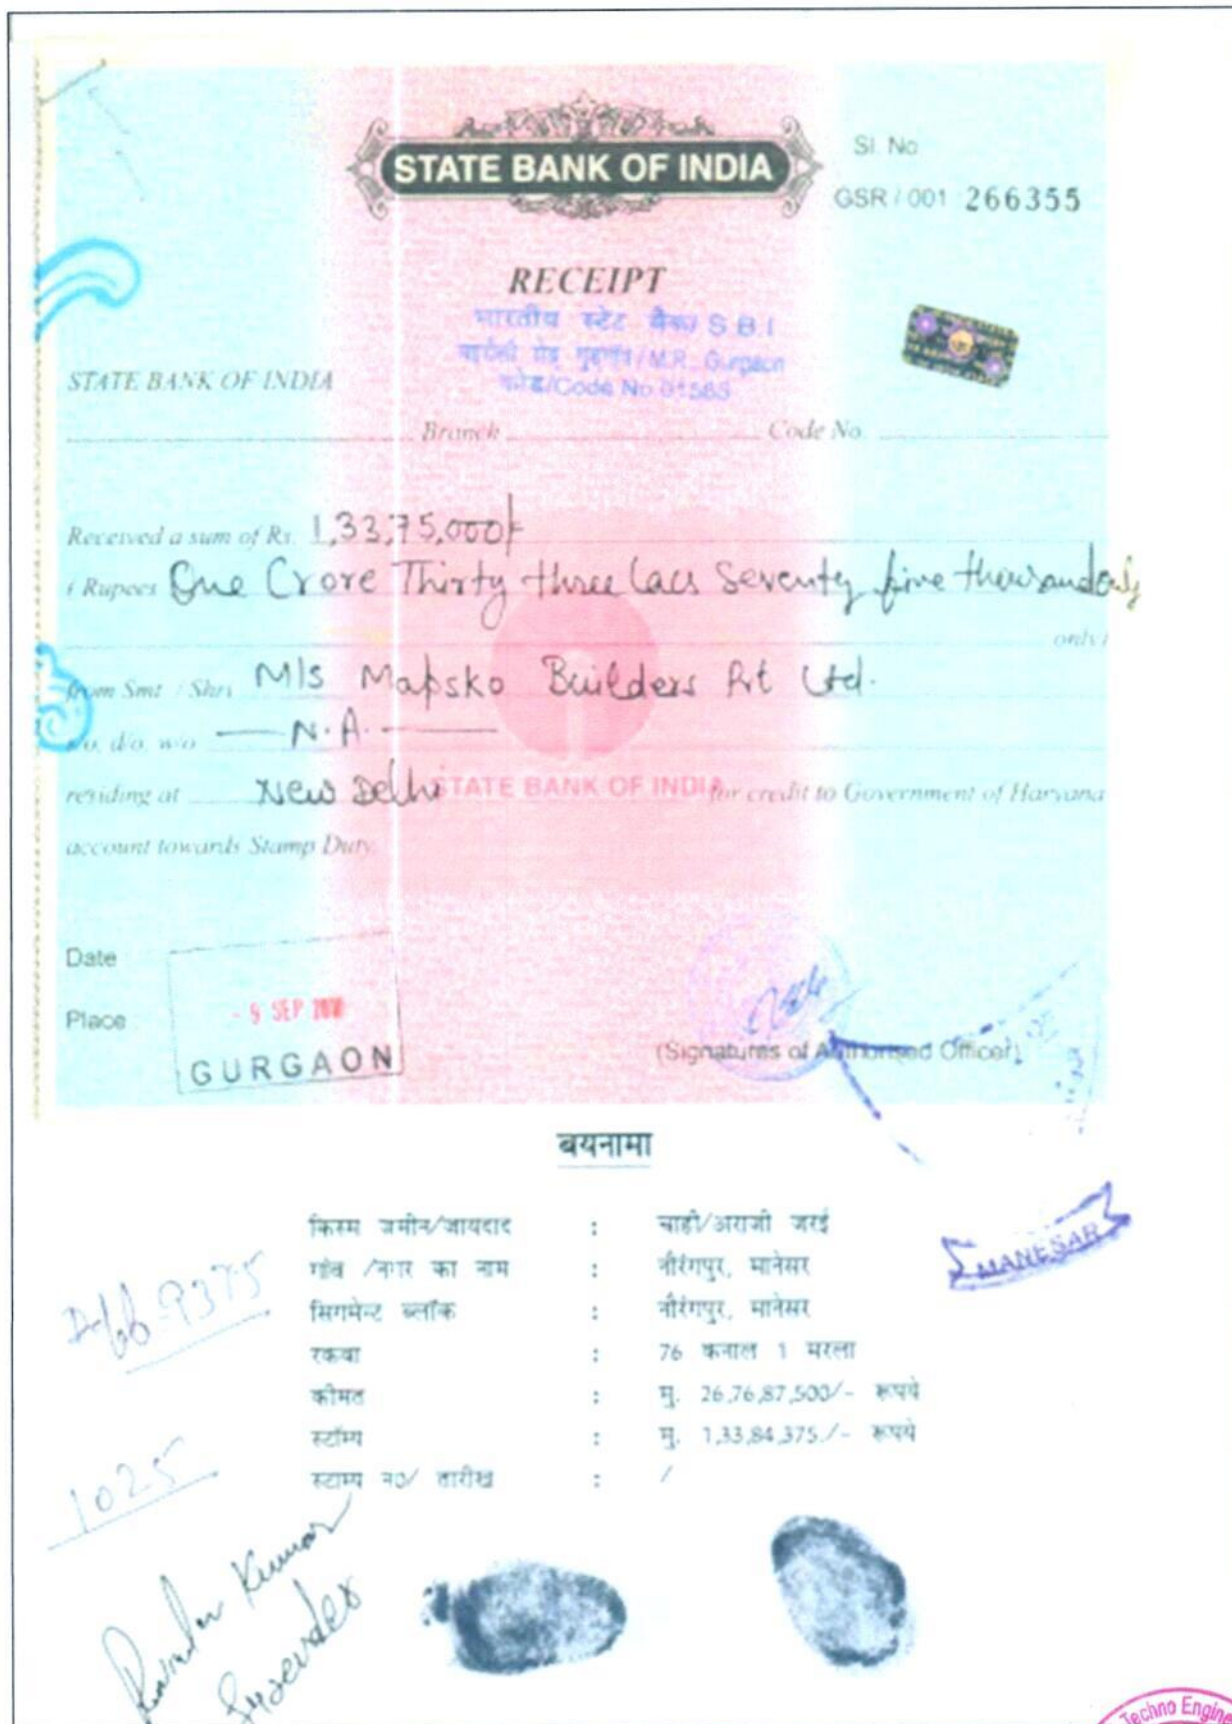 STATE BANK OF INDIA
Sl. No
GSR / 001 266355
RECEIPT
भारतीय स्टेट बैंक/ S B I
गुड़गांव/M.R. Gurgaon
कोड/Code No 01565
STATE BANK OF INDIA
Branch Code No.
Received a sum of Rs. 1,33,75,000/-
( Rupees One Crore Thirty three lacs Seventy five thousand only
only)
from Smt / Shri M/s Mapsko Builders Pvt Ltd.
s/o, d/o, w/o — N.A. —
residing at New Delhi STATE BANK OF INDIA for credit to Government of Haryana
account towards Stamp Duty.
Date
Place
- 9 SEP
GURGAON
(Signatures of Authorised Officer)
बयनामा
किस्म जमीन/जायदाद : चाही/अराजी जरई
गांव /नगर का नाम : नौरंगपुर, मानेसर
सिगमेन्ट ब्लॉक : नौरंगपुर, मानेसर
MANESAR
रकबा : 76 कनाल 1 मरला
कीमत : मु. 26,76,87,500/- रूपये
स्टॉम्प : मु. 1,33,84,375/- रूपये
स्टाम्प न0/ तारीख : /
9375
1025
Kumar
Techno Engine